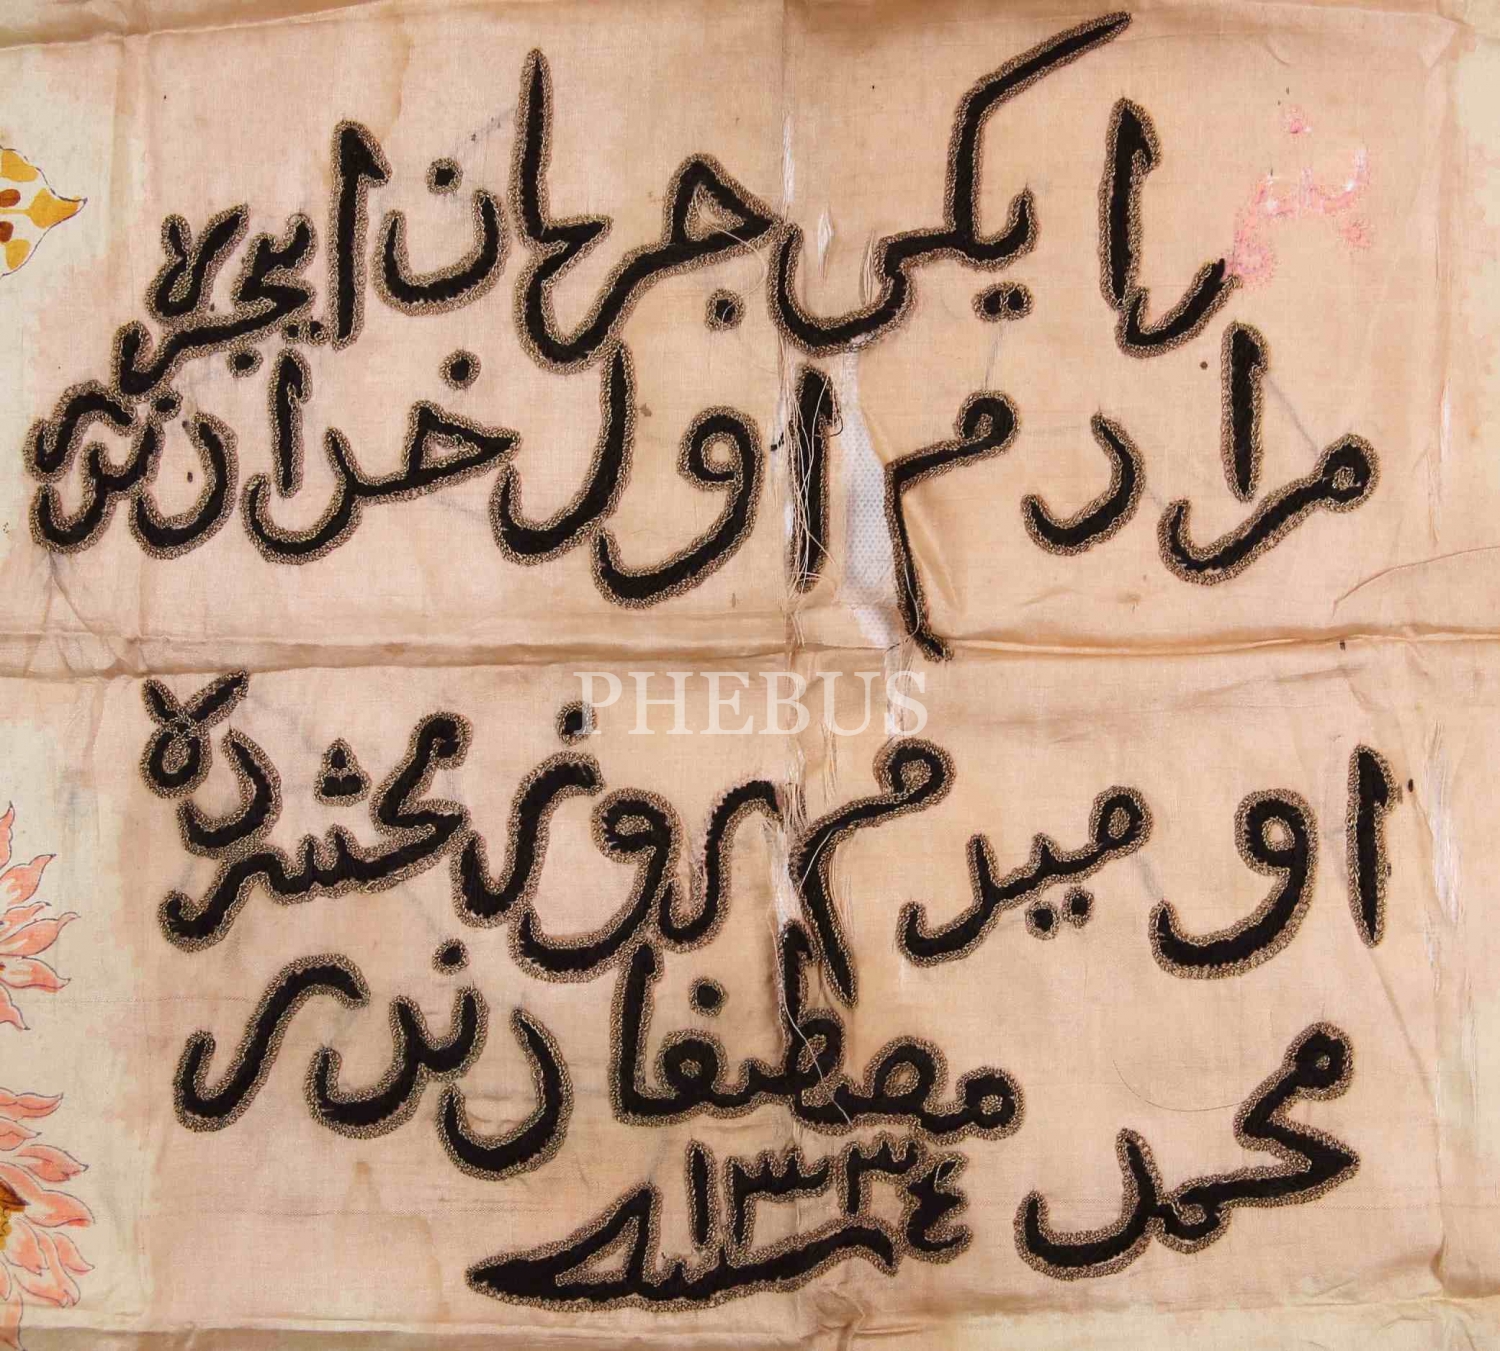 را یکی جهان ایچره
مرادم اول خدادندر
اومیدم روز محشرده
محمد مصطفادندر
سنه ١٣٣٤
PHEBUS